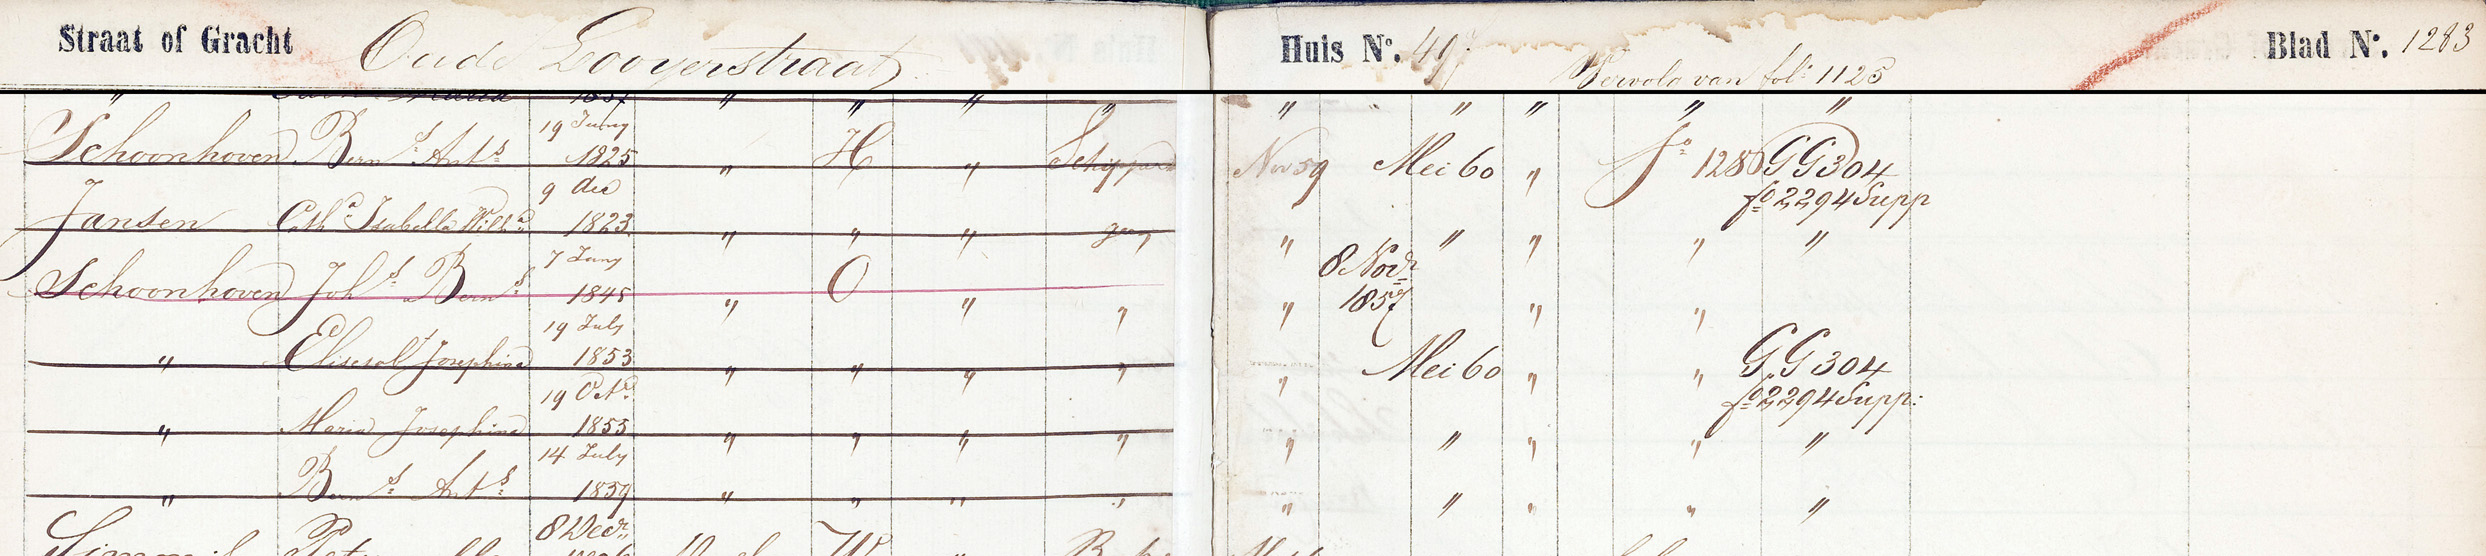 Straat of Gracht Oude Looyerstraat Huis No. 497 Vervolg van fol: 1125 Blad No. 1283
" 1857 " " " " " " " " "
Schoonhoven Berns Ants 19 Juny 1825 " H " Schipper Nov 59 Mei 60 " fo 1286 GG304
fo 2294 Supp
Jansen Catha Isabella Wilha 9 dec 1823 " " " " " " " "
Schoonhoven Johs Berns 7 Juny 1845 " O " " " 8 Novr 1857 " "
" Elisabt Josephina 19 July 1853 " " " " " Mei 60 " " GG304
fo 2294 Supp:
" Maria Josephina 19 Octr 1855 " " " " " " " " "
" Berns Ants 14 July 1859 " " " " " " " " "
8 Decr W